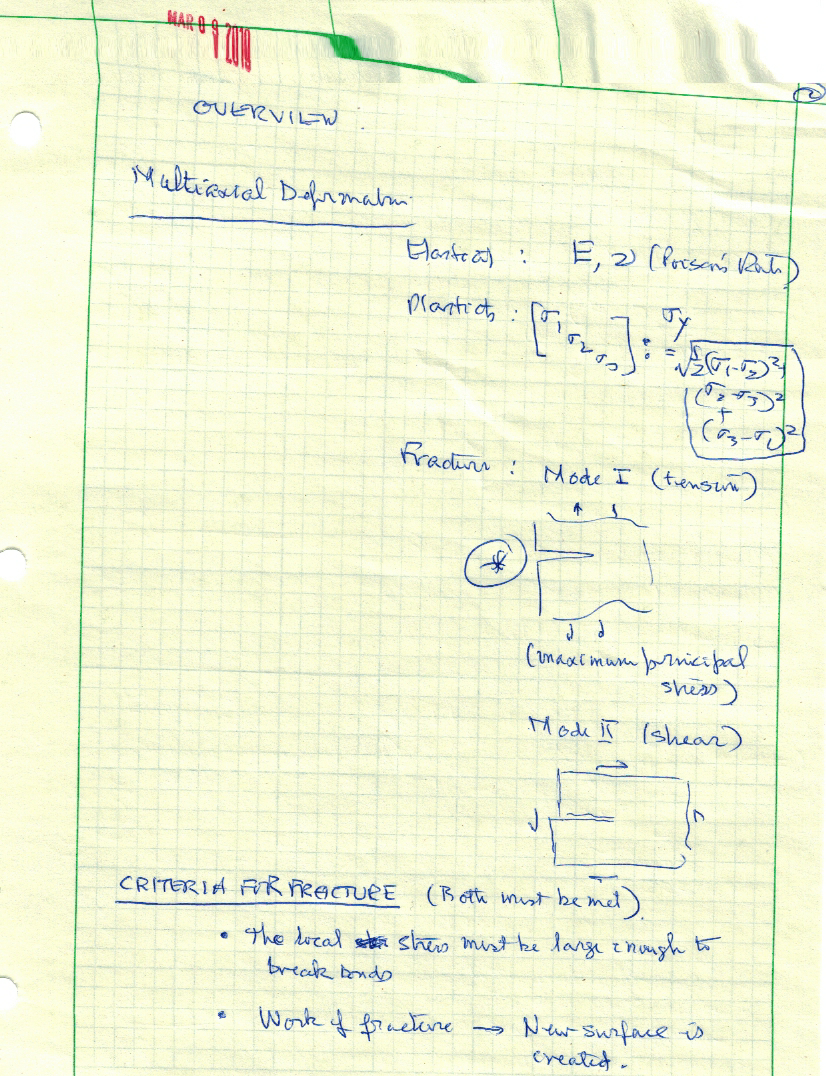 MAR 09 2010
2
OVERVIEW
Multiaxial Deformation
Elastical : E, ν (Poisson's Ratio)
Plasticity : [σ1 σ2 σ3] : σy
= √½(σ1-σ2)²+
(σ2-σ3)²
+
(σ3-σ1)²
Fracture : Mode I (tension)
*
(maximum principal
stress)
Mode II (shear)
CRITERIA FOR FRACTURE (Both must be met).
• The local stress must be large enough to
break bonds
• Work of fracture → New surface is
created.